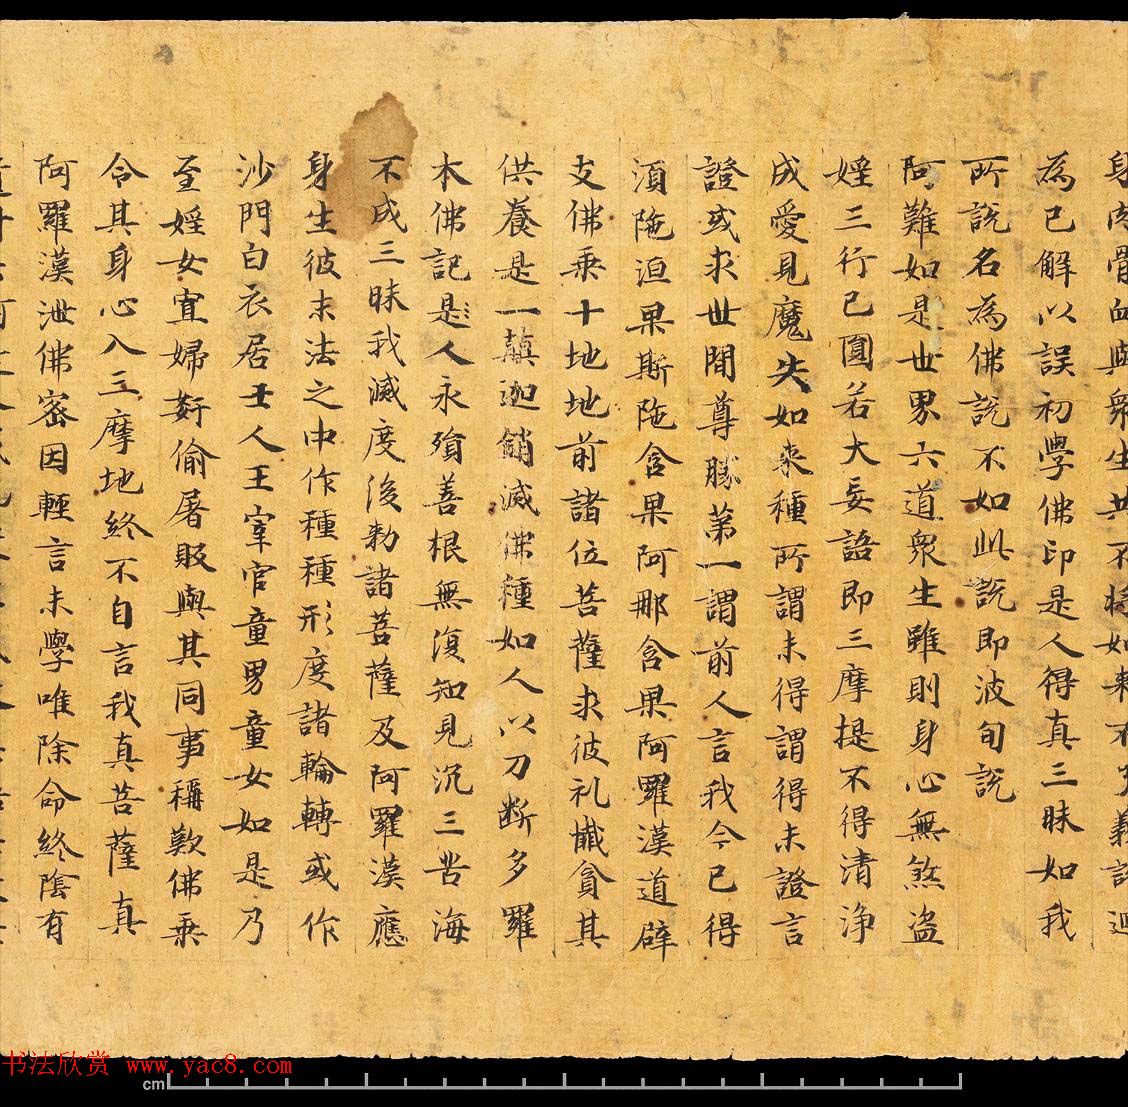 身肉骨血與衆生共不將如来不了義說迴
為已解以誤初學佛印是人得真三昧如我
所說名為佛說不如此說即波旬說
阿難如是世界六道衆生雖則身心無煞盗
婬三行已圓若大妄語即三摩提不得清淨
成愛見魔失如来種所謂未得謂得未證言
證或求世間尊勝第一謂前人言我今已得
湏陁洹果斯陁含果阿那含果阿羅漢道辟
支佛乘十地地前諸位菩薩求彼礼懺貪其
供養是一顛迦銷滅佛種如人以刀断多羅
木佛記是人永殞善根無復知見沉三苦海
不成三昧我滅度後勑諸菩薩及阿羅漢應
身生彼末法之中作種種形度諸輪轉或作
沙門白衣居士人王宰官童男童女如是乃
至婬女寡婦姧偷屠販與其同事稱歎佛乘
令其身心入三摩地終不自言我真菩薩真
阿羅漢泄佛密因輕言未學唯除命終陰有
书法欣赏 www.yac8.com
cm